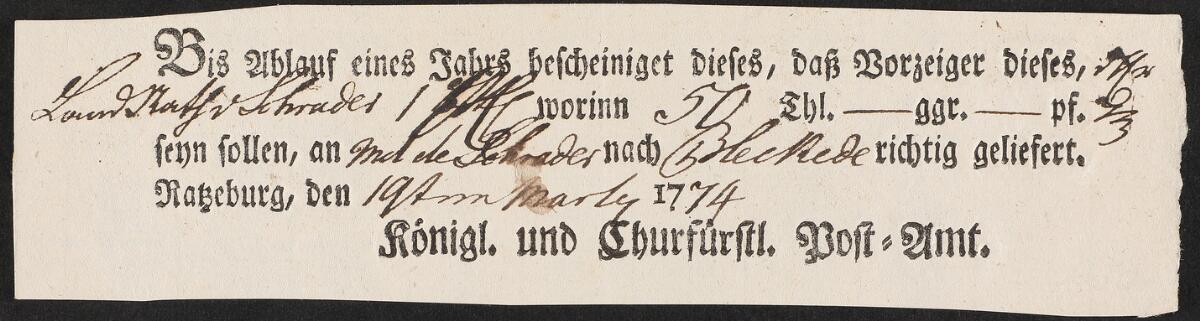 Bis Ablauf eines Jahrs bescheiniget dieses, daß Vorzeiger dieses, Hr
Land Rath v Schrader 1 worinn 50 Thl. — ggr. — pf. 2/3
seyn sollen, an Md de Schrader nach Bleckede richtig geliefert.
Ratzeburg, den 19t Marty 1774
Königl. und Churfürstl. Post-Amt.